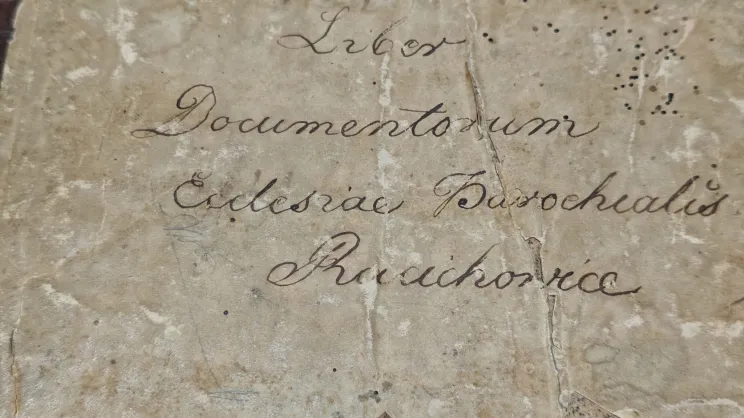 Liber
Documentorum
Ecclesiae Parochialis